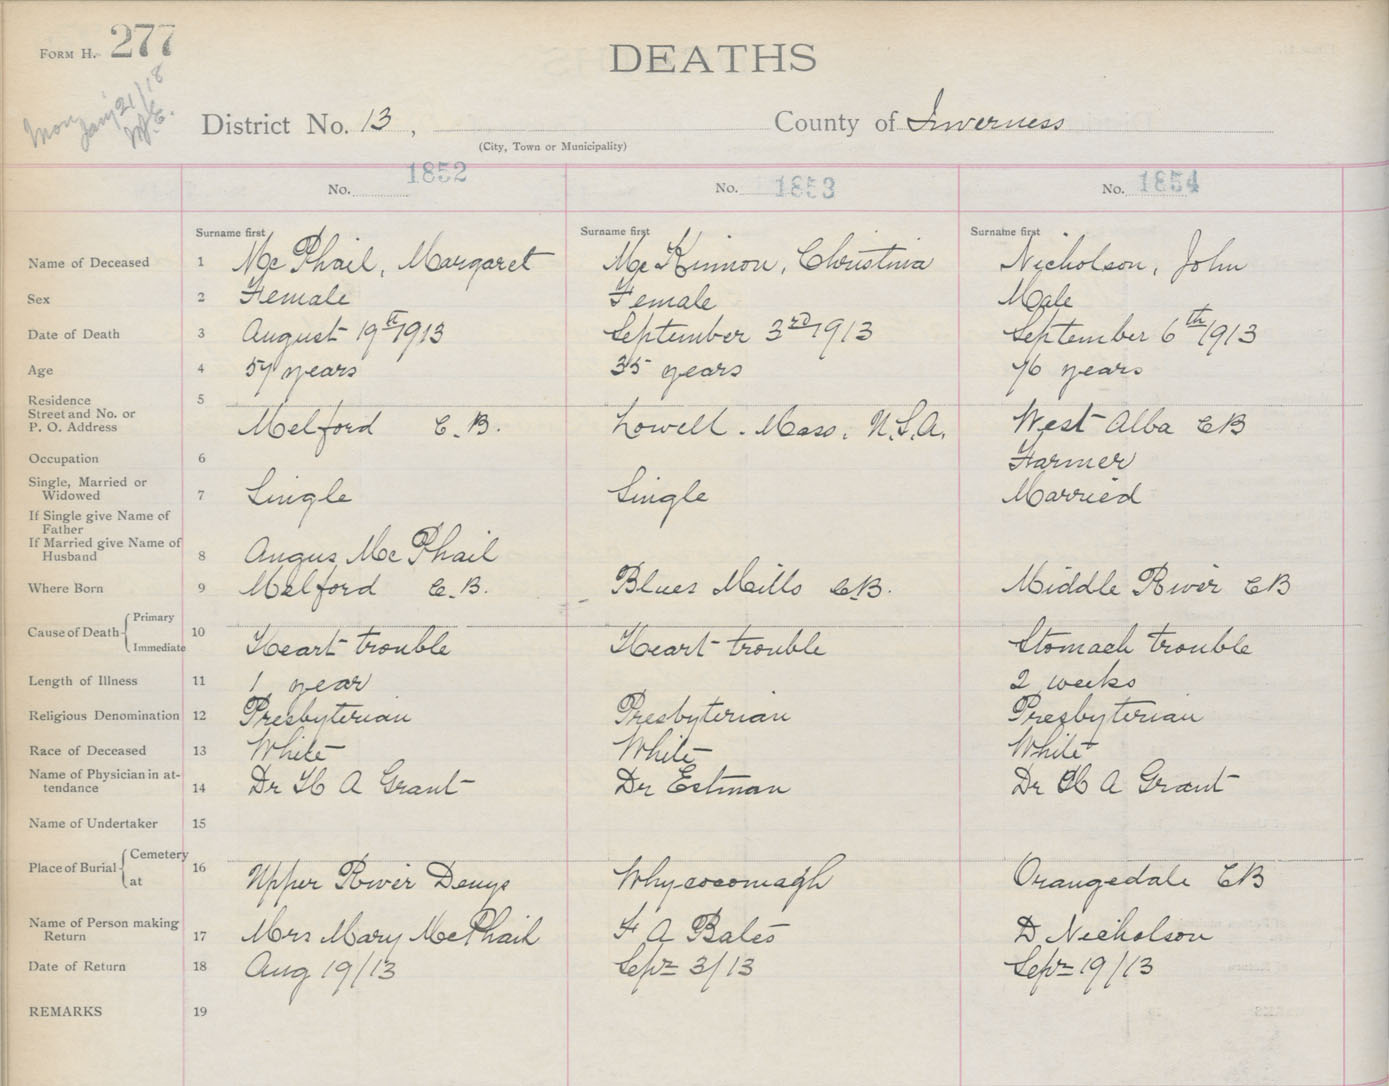 FORM H. 277
DEATHS
Mon Jan'y 21/18
District No. 13, County of Inverness
(City, Town or Municipality)
No. 1852 No. 1853 No. 1854
Surname first Surname first Surname first
Name of Deceased 1 Mc Phail, Margaret Mc Kinnon, Christina Nicholson, John
Sex 2 Female Female Male
Date of Death 3 August 19th 1913 September 3rd 1913 September 6th 1913
Age 4 57 years 35 years 76 years
Residence 5
Street and No. or
P. O. Address Melford C.B. Lowell. Mass. U.S.A. West Alba CB
Occupation 6 Farmer
Single, Married or
Widowed 7 Single Single Married
If Single give Name of
Father
If Married give Name of
Husband 8 Angus Mc Phail
Where Born 9 Melford C.B. Blues Mills C.B. Middle River CB
Cause of Death Primary
Immediate 10 Heart trouble Heart trouble Stomach trouble
Length of Illness 11 1 year 2 weeks
Religious Denomination 12 Presbyterian Presbyterian Presbyterian
Race of Deceased 13 White White White
Name of Physician in at-
tendance 14 Dr H A Grant Dr Estman Dr H A Grant
Name of Undertaker 15
Place of Burial Cemetery
at 16 Upper River Denys Whycocomagh Orangedale CB
Name of Person making
Return 17 Mrs Mary McPhail F A Bates D Nicholson
Date of Return 18 Aug 19/13 Sept 3/13 Sept 19/13
REMARKS 19